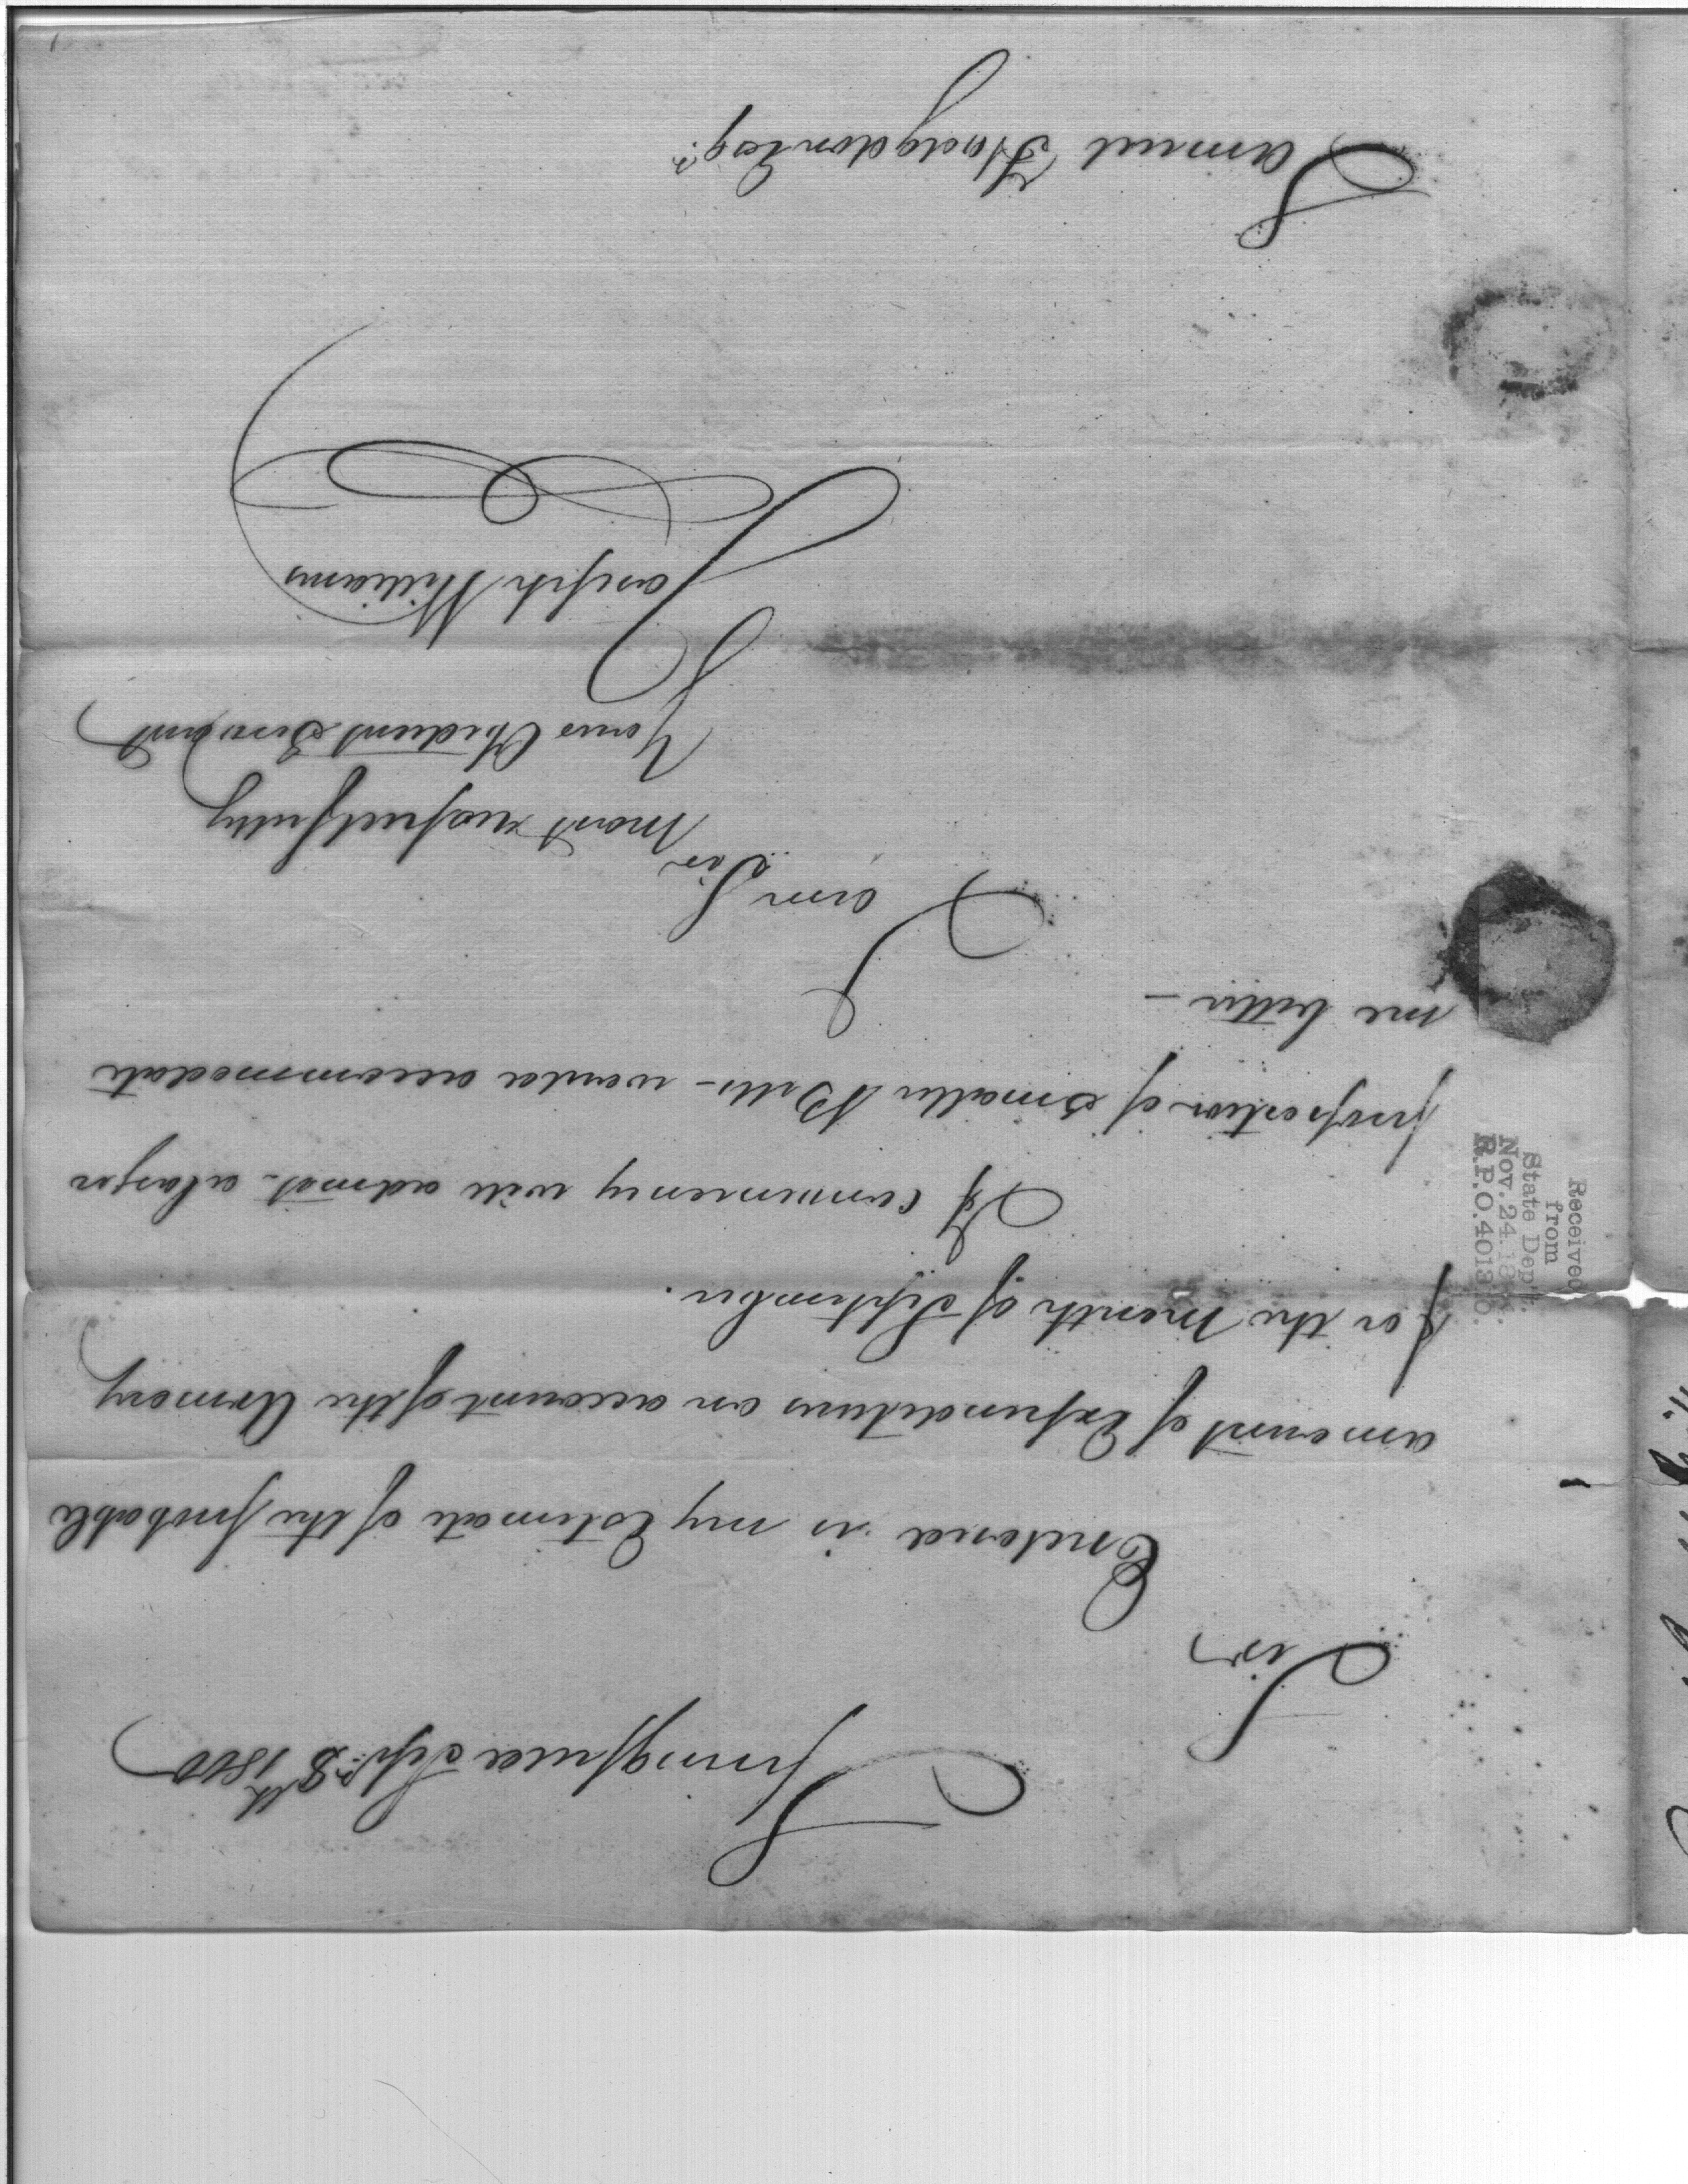 Springfield Sepr. 8th 1800
Sir
Enclosed is my Estimate of the probable
amount of Expenditures on account of the Armory
for the Month of September.
If conveniency will admit - a larger
proportion of smaller Bills - would accommodate
me better -
I am Sir
most respectfully
Your Obedient Servant
Joseph Williams
Samuel Hodgdon Esqr.
Received
from
State Dept.
Nov. 24, 18
R.P.O. 401360.